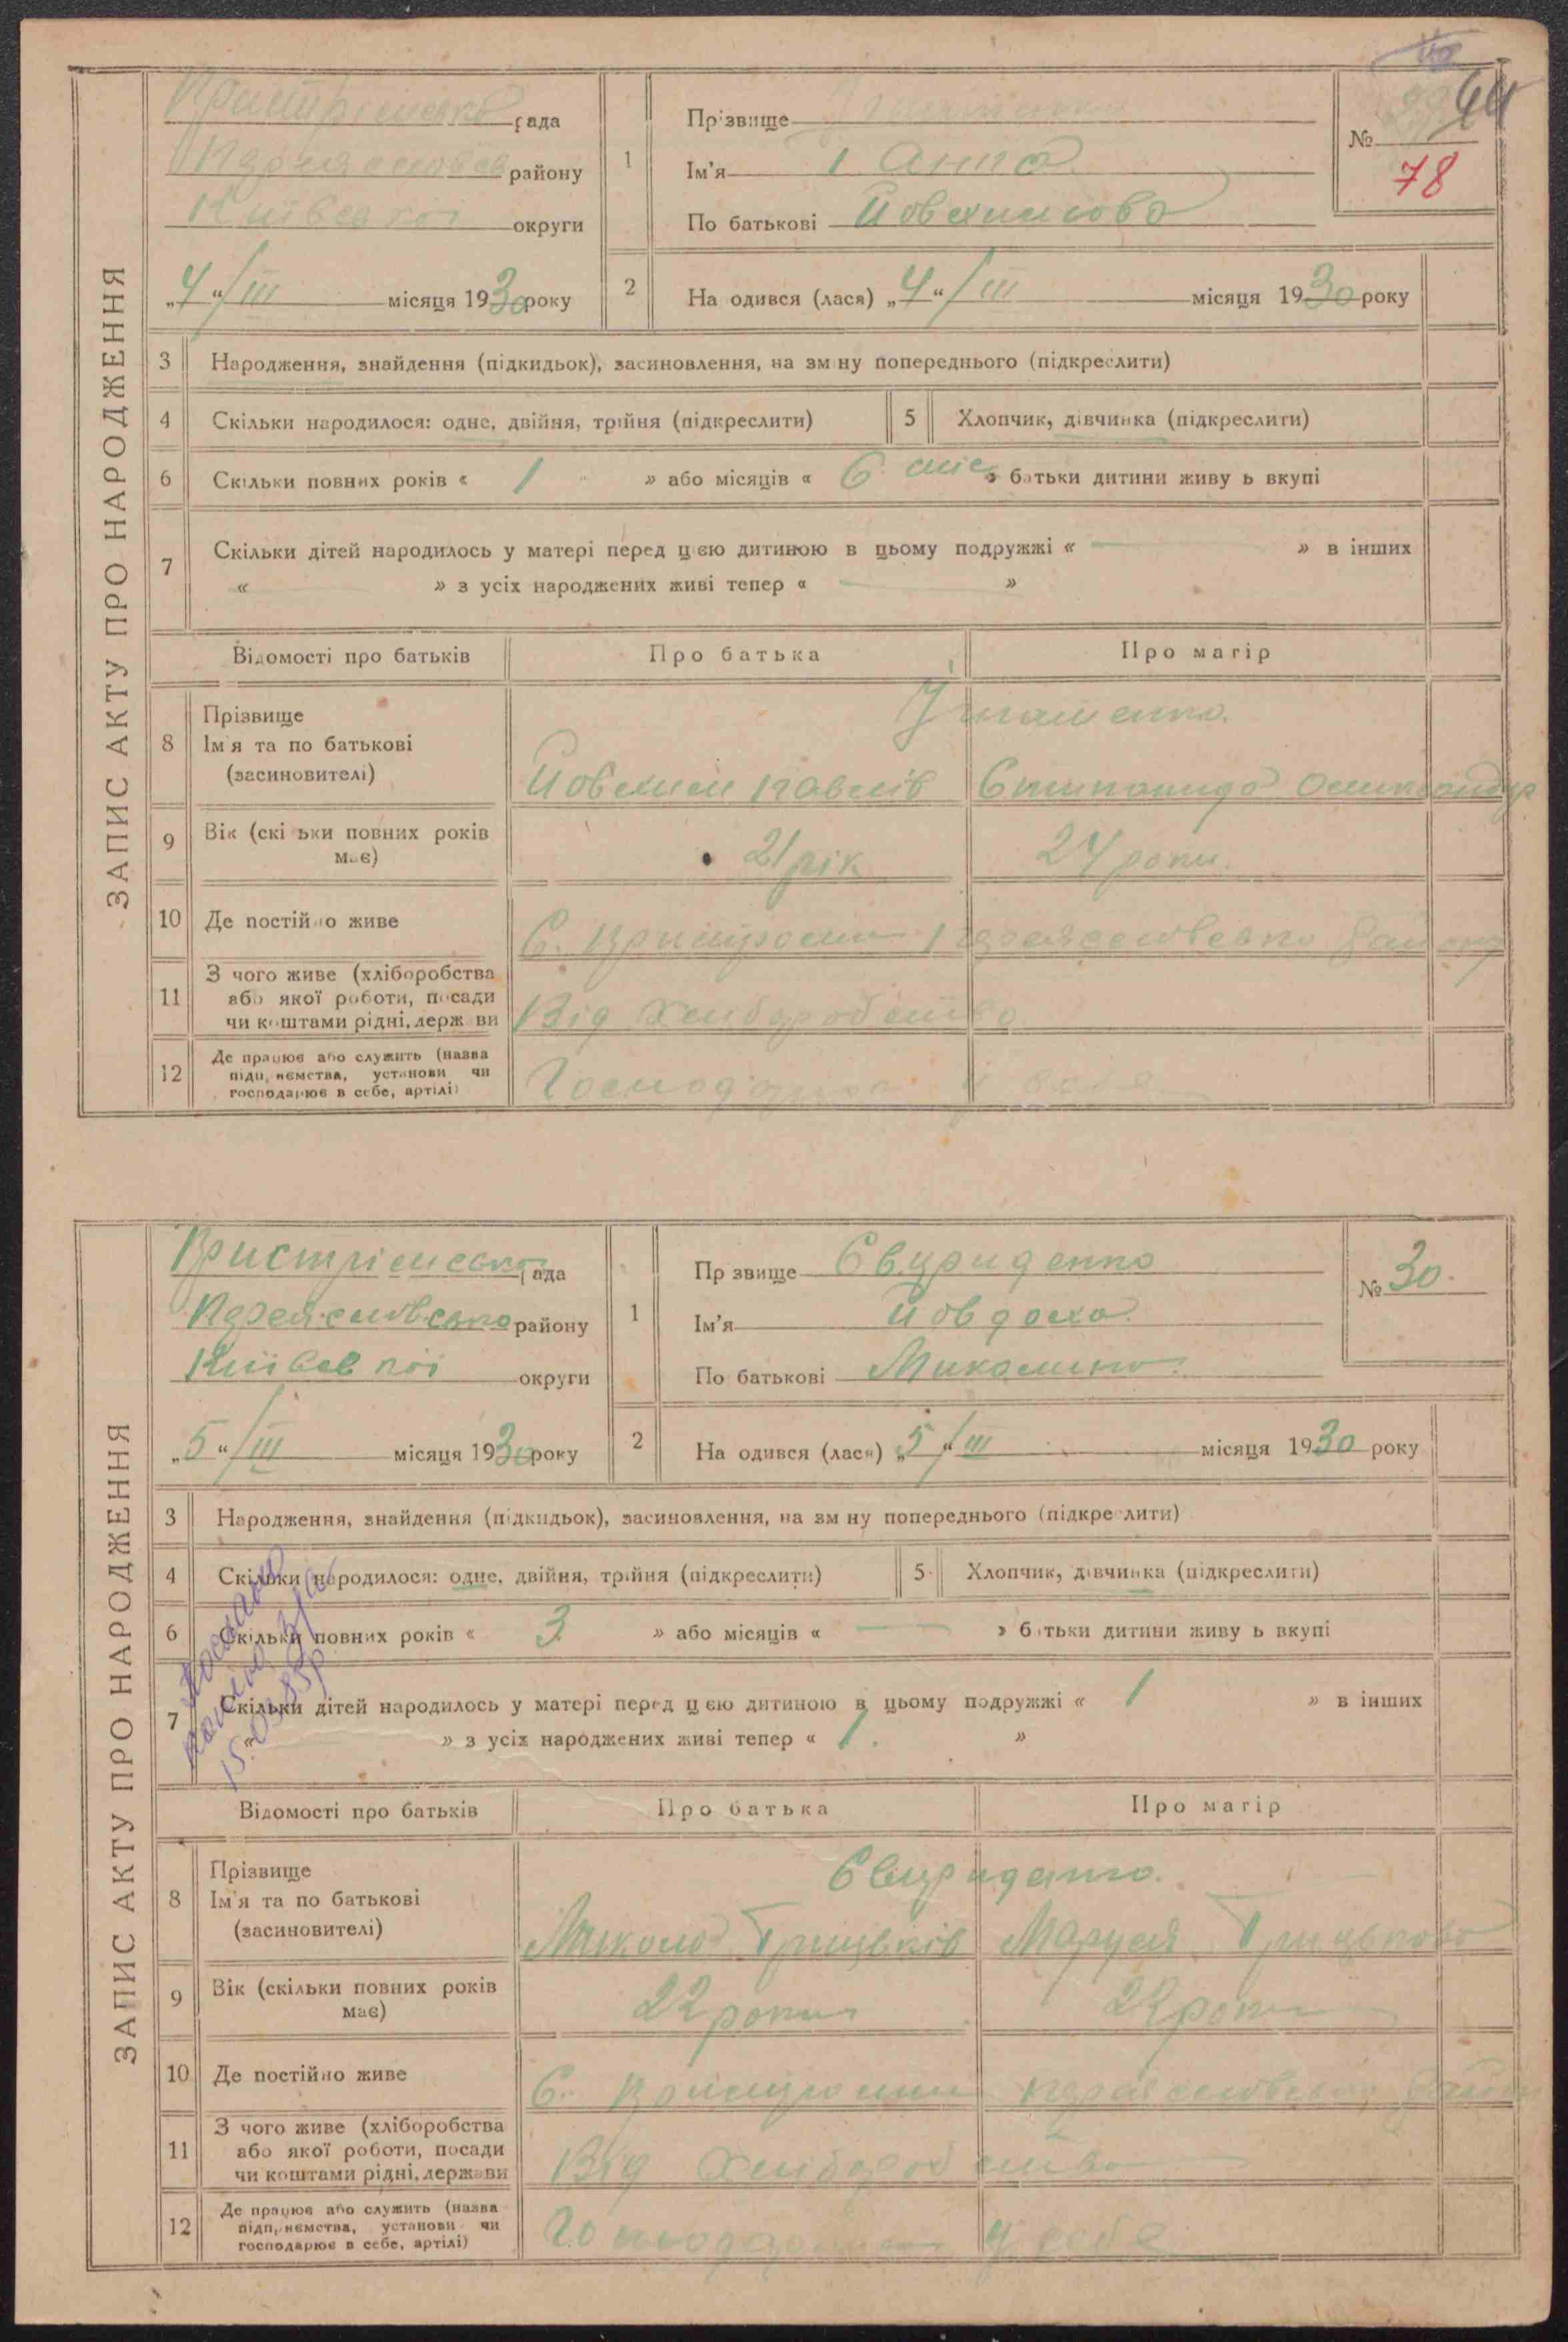 ЗАПИС АКТУ ПРО НАРОДЖЕННЯ
рада
району
Київської округи
„4“/III місяця 1930 року
1
Прізвище
Ім'я Анна
По батькові
№
64
78
2 Народився (лася) „4“/III місяця 1930 року
3 Народження, знайдення (підкидьок), засиновлення, на зміну попереднього (підкреслити)
4 Скільки народилося: одне, двійня, трійня (підкреслити)
5 Хлопчик, дівчинка (підкреслити)
6 Скільки повних років « 1 » або місяців « 6 міс » батьки дитини живуть вкупі
7 Скільки дітей народилось у матері перед цією дитиною в цьому подружжі « — » в інших
« — » з усіх народжених живі тепер « — »
Відомості про батьків Про батька Про матір
8 Прізвище
Ім'я та по батькові
(засиновителі)
Павлів
9 Вік (скільки повних років
має)
21 рік 24 роки
10 Де постійно живе
С. району
11 З чого живе (хліборобства
або якої роботи, посади
чи коштами рідні, держави
Від Хліборобства
12 Де працює або служить (назва
підприємства, установи чи
господарює в себе, артілі)
у себе
ЗАПИС АКТУ ПРО НАРОДЖЕННЯ
рада
району
Київської округи
„5“/III місяця 1930 року
1
Прізвище Свириденко
Ім'я Йовдоха
По батькові Миколина
№ 30
2 Народився (лася) „5“/III місяця 1930 року
3 Народження, знайдення (підкидьок), засиновлення, на зміну попереднього (підкреслити)
4 Скільки народилося: одне, двійня, трійня (підкреслити)
5 Хлопчик, дівчинка (підкреслити)
6 Скільки повних років « 3 » або місяців « — » батьки дитини живуть вкупі
7 Скільки дітей народилось у матері перед цією дитиною в цьому подружжі « 1 » в інших
» з усіх народжених живі тепер « 1 »
Відомості про батьків Про батька Про матір
8 Прізвище
Ім'я та по батькові
(засиновителі)
Свириденко
Микола Грицьків Маруся Грицькова
9 Вік (скільки повних років
має)
22 роки 22 роки
10 Де постійно живе
С.
11 З чого живе (хліборобства
або якої роботи, посади
чи коштами рідні, держави
Від Хліборобства
12 Де працює або служить (назва
підприємства, установи чи
господарює в себе, артілі)
у себе